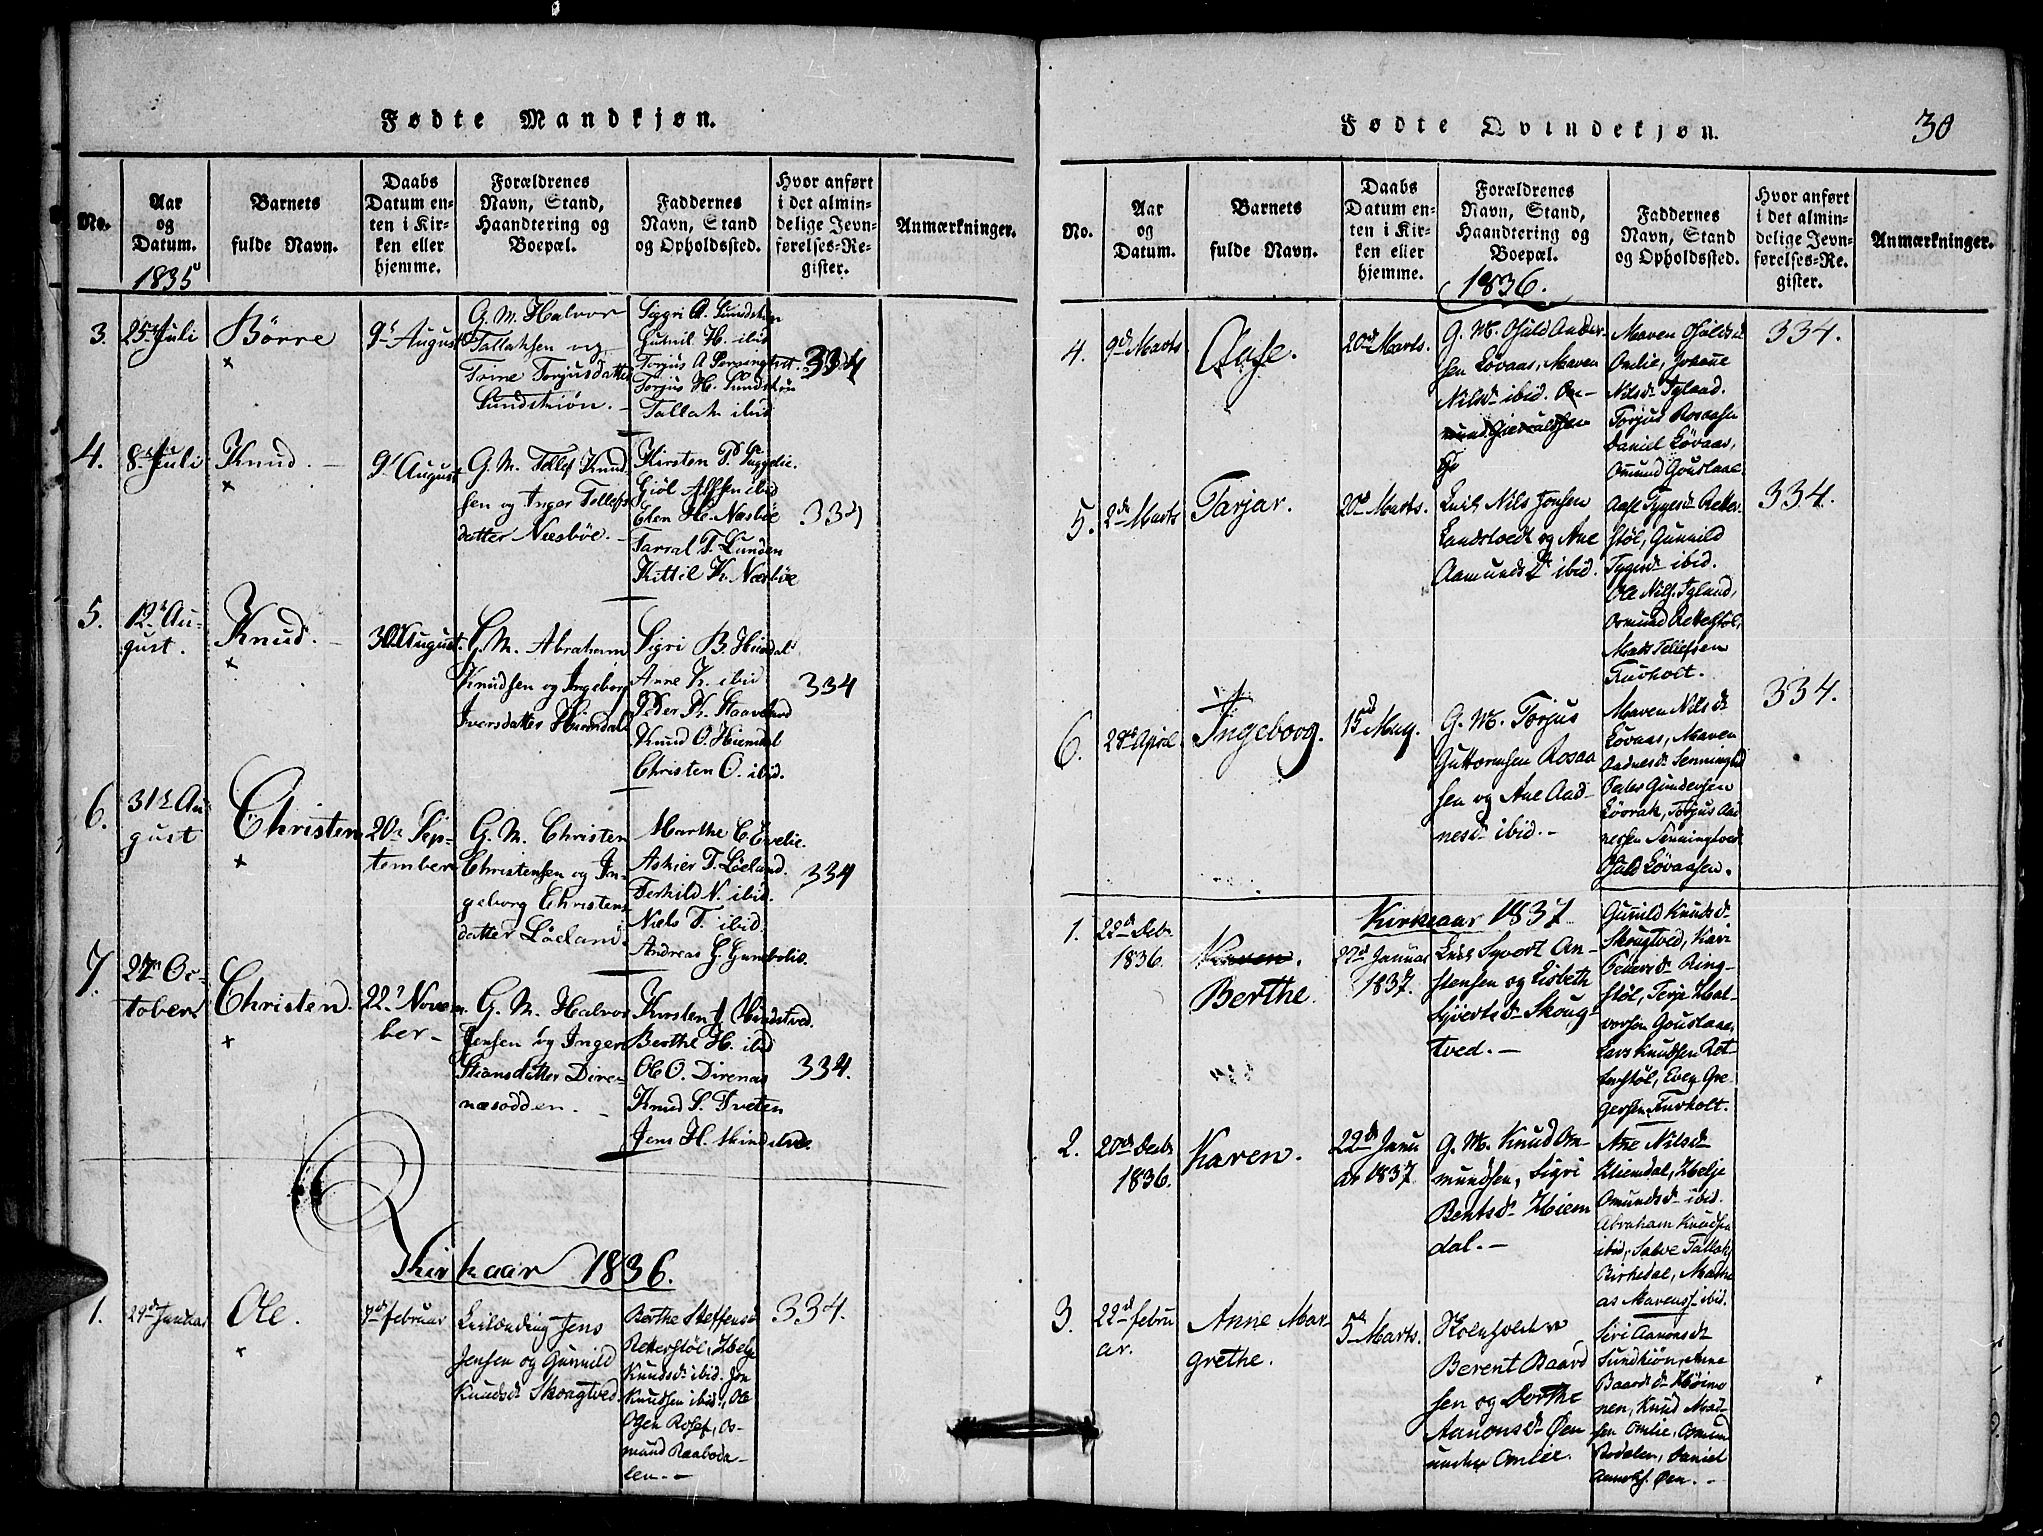 Fødte Mandkjøn.
No.
Aar
og
Datum.
1835
Barnets
fulde Navn.
Daabs
Datum en-
ten i Kir-
ken eller
hjemme.
Forældrenes
Navn, Stand,
Haandtering og
Boepæl.
Faddernes
Navn, Stand
og Opholdssted.
Hvor anført
i det almin-
delige Jevn-
førelses-Re-
gister.
Anmærkninger.
3.
25de Juli
Børre
9de August
G. M. Halvor
Tallaksen og
Trine Torjusdatter
Sundskiøn.
Siggri A. Sundskiøn
Gunnil H. ibid
Torjus A
Torjus H. Sundskiøn
Tallak ibid
334
4.
8de Juli
Knud.
9de August
G. M. Tellef Knud
sen og Inger Tellefs
datter Næsbøe.
Kirsten
Giøl ibid
Elen H. Næsbøe
Tarral T. Lunden
Kittil K. Næsbøe
334
5.
12te Au-
gust.
Knud.
30 August.
G. M. Abraham
Knudsen og Ingeborg
Iversdatter Hiemdal
Sigri B. Hiemdal
Anne K. ibid
Peder K. Staaveland
Knud O. Hiemdal
Christen O. ibid.
334
6.
31te Au
gust
Christen
20de Sep-
tember
G. M. Christen
Christensen og In-
geborg Christens
datter Löeland.
Marthe C. Evelie.
Askier T. Löeland.
Terkild N. ibid.
Niels T. ibid.
Andreas G.
334
7.
27de Oc-
tober
Christen.
22de Novem
ber
G. M. Halvor
Jensen og Inger
Stiansdatter Dire-
næsodden.
Kirsten J. Mindstved.
Berthe H. ibid
Ole O. Direnæs
Knud S. Tveten
Jens H. Mindstved.
334.
Kirkaar 1836.
1.
29de Januar
Ole.
7de februar
Leilænding Jens
Jensen og Gunnild
Knudsdr Skougtved.
Berthe Steffensd
Retterstøl, Helje
Knudsdr ibid. Jon
Knudsen ibid, Ole
Olsen Rosef, Os-
mund Raaboda-
len.
334.
Fødte Qvindekjøn.
30
No.
Aar
og
Datum.
Barnets
fulde Navn.
Daabs
Datum en-
ten i Kir-
ken eller
hjemme.
Forældrenes
Navn, Stand,
Haandtering og
Boepæl.
1836.
Faddernes
Navn, Stand
og Opholdssted.
Hvor anført
i det almin-
delige Jevn-
førelses-Re-
gister.
Anmærkninger.
4.
9de Marts
Aase.
20de Marts.
G. M. Osuld Ander
sen Løvaas, Maren
Nilsdr ibid.
Maren Osuldsd
Omlie,
Nilsdr Igland.
Torjus Rosaasen
Daniel Løvaas,
Omund Gouslaae
334.
5.
2de Marts
Tarjar.
20de Marts.
Leil. Nils Jonsen
Landstoedt og Ane
Aamundsdr ibid.
Aase Tygesdr Retter
støl, Gunnild
Tygesdr ibid.
Ole Nils. Igland,
Osmund Retterstøl,
Mads Tellefsen
Furholt.
334.
6.
29de April.
Ingeborg.
15de May.
G. M. Torjus
Guttormsen Rosaa
sen og Ane Aad-
nesdr ibid.
Maren Nilsdr
Løvaas, Maren
Aadnesdr Senningtved
Peder Gundersen
Løvrak, Torjus Aad
nesen Senningtved
Osuld Løvaasen.
334.
Kirkeaar 1837.
1.
22de Debr
1836.
Karen.
Berthe.
22de Januar
1837.
Leil. Syvert An-
stensen og Lisbeth
Syvertsdr Skoug-
tved.
Gunild Knudsdr
Skougtved, Kari
Pedersdr Ring-
støl, Terje Hal-
vorsen Gouslaae,
Lars Knudsen Ret-
terstøl, Even Gre-
gersen Furholt.
2.
20de Debr
1836.
Karen.
22de Janu
ar 1837.
G. M. Knud Om-
mundsen, Sigri
Bentsdr Hiem
dal.
Ane Nilsdr
Hiemdal, Helje
Omundsdr ibid.
Abraham Knudsen
ibid, Salve Tallaks,
Birkedal, Mathi
as Mareus. ibid.
3.
22de febru
ar.
Anne Mar-
grethe.
5te Marts.
Berent Baard
sen og Dorthe
Aanonsdr Øen
under Omlie.
Siri Aanonsdr
Sundkiøn, Anne
Baardsdr Høino
nen, Knud Mad-
sen Omlie, Osmun
Rodalen, Daniel
Øen.